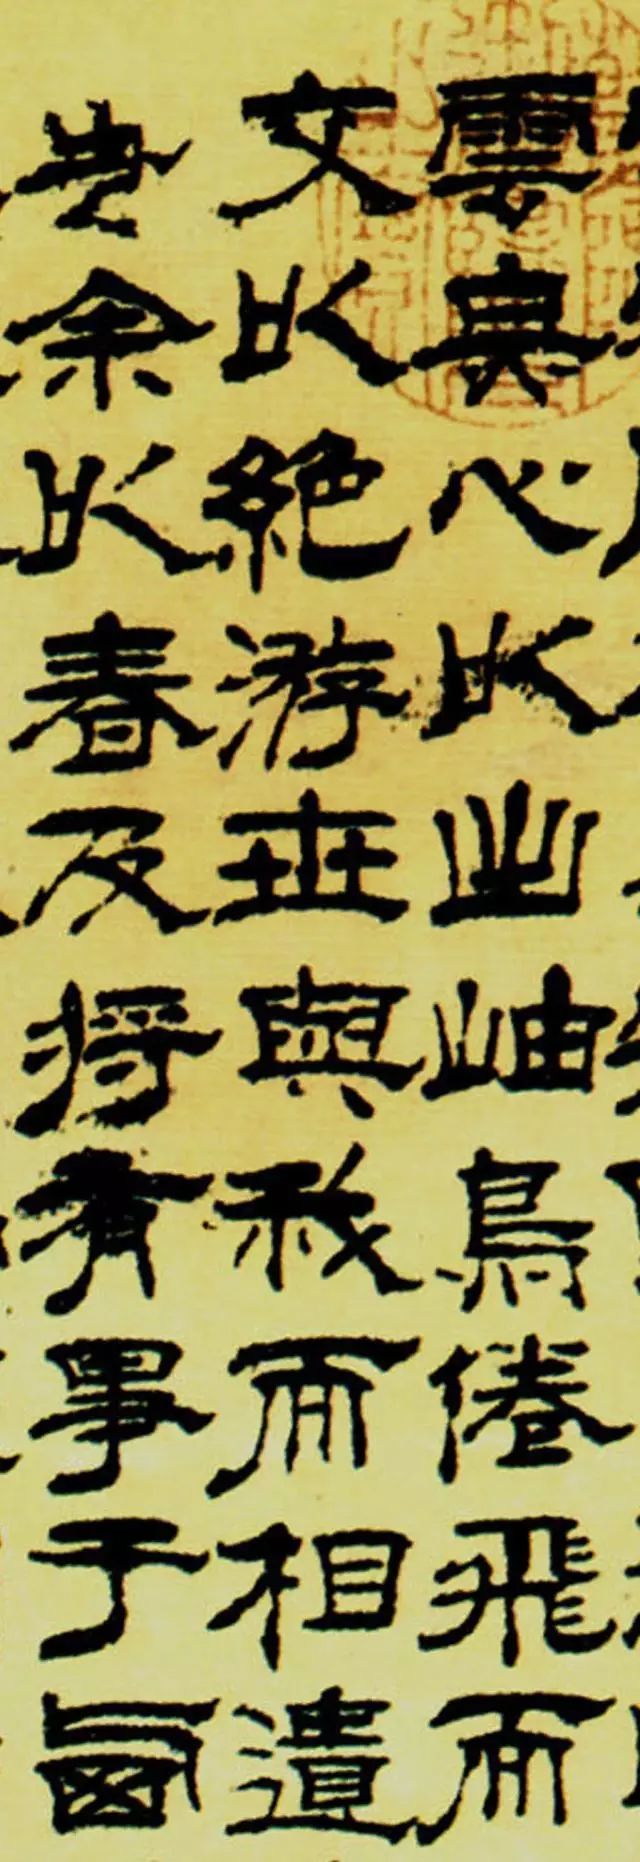 雲無心以出岫鳥倦飛而
交以絕游世與我而相遺
告余以春及將有事于西